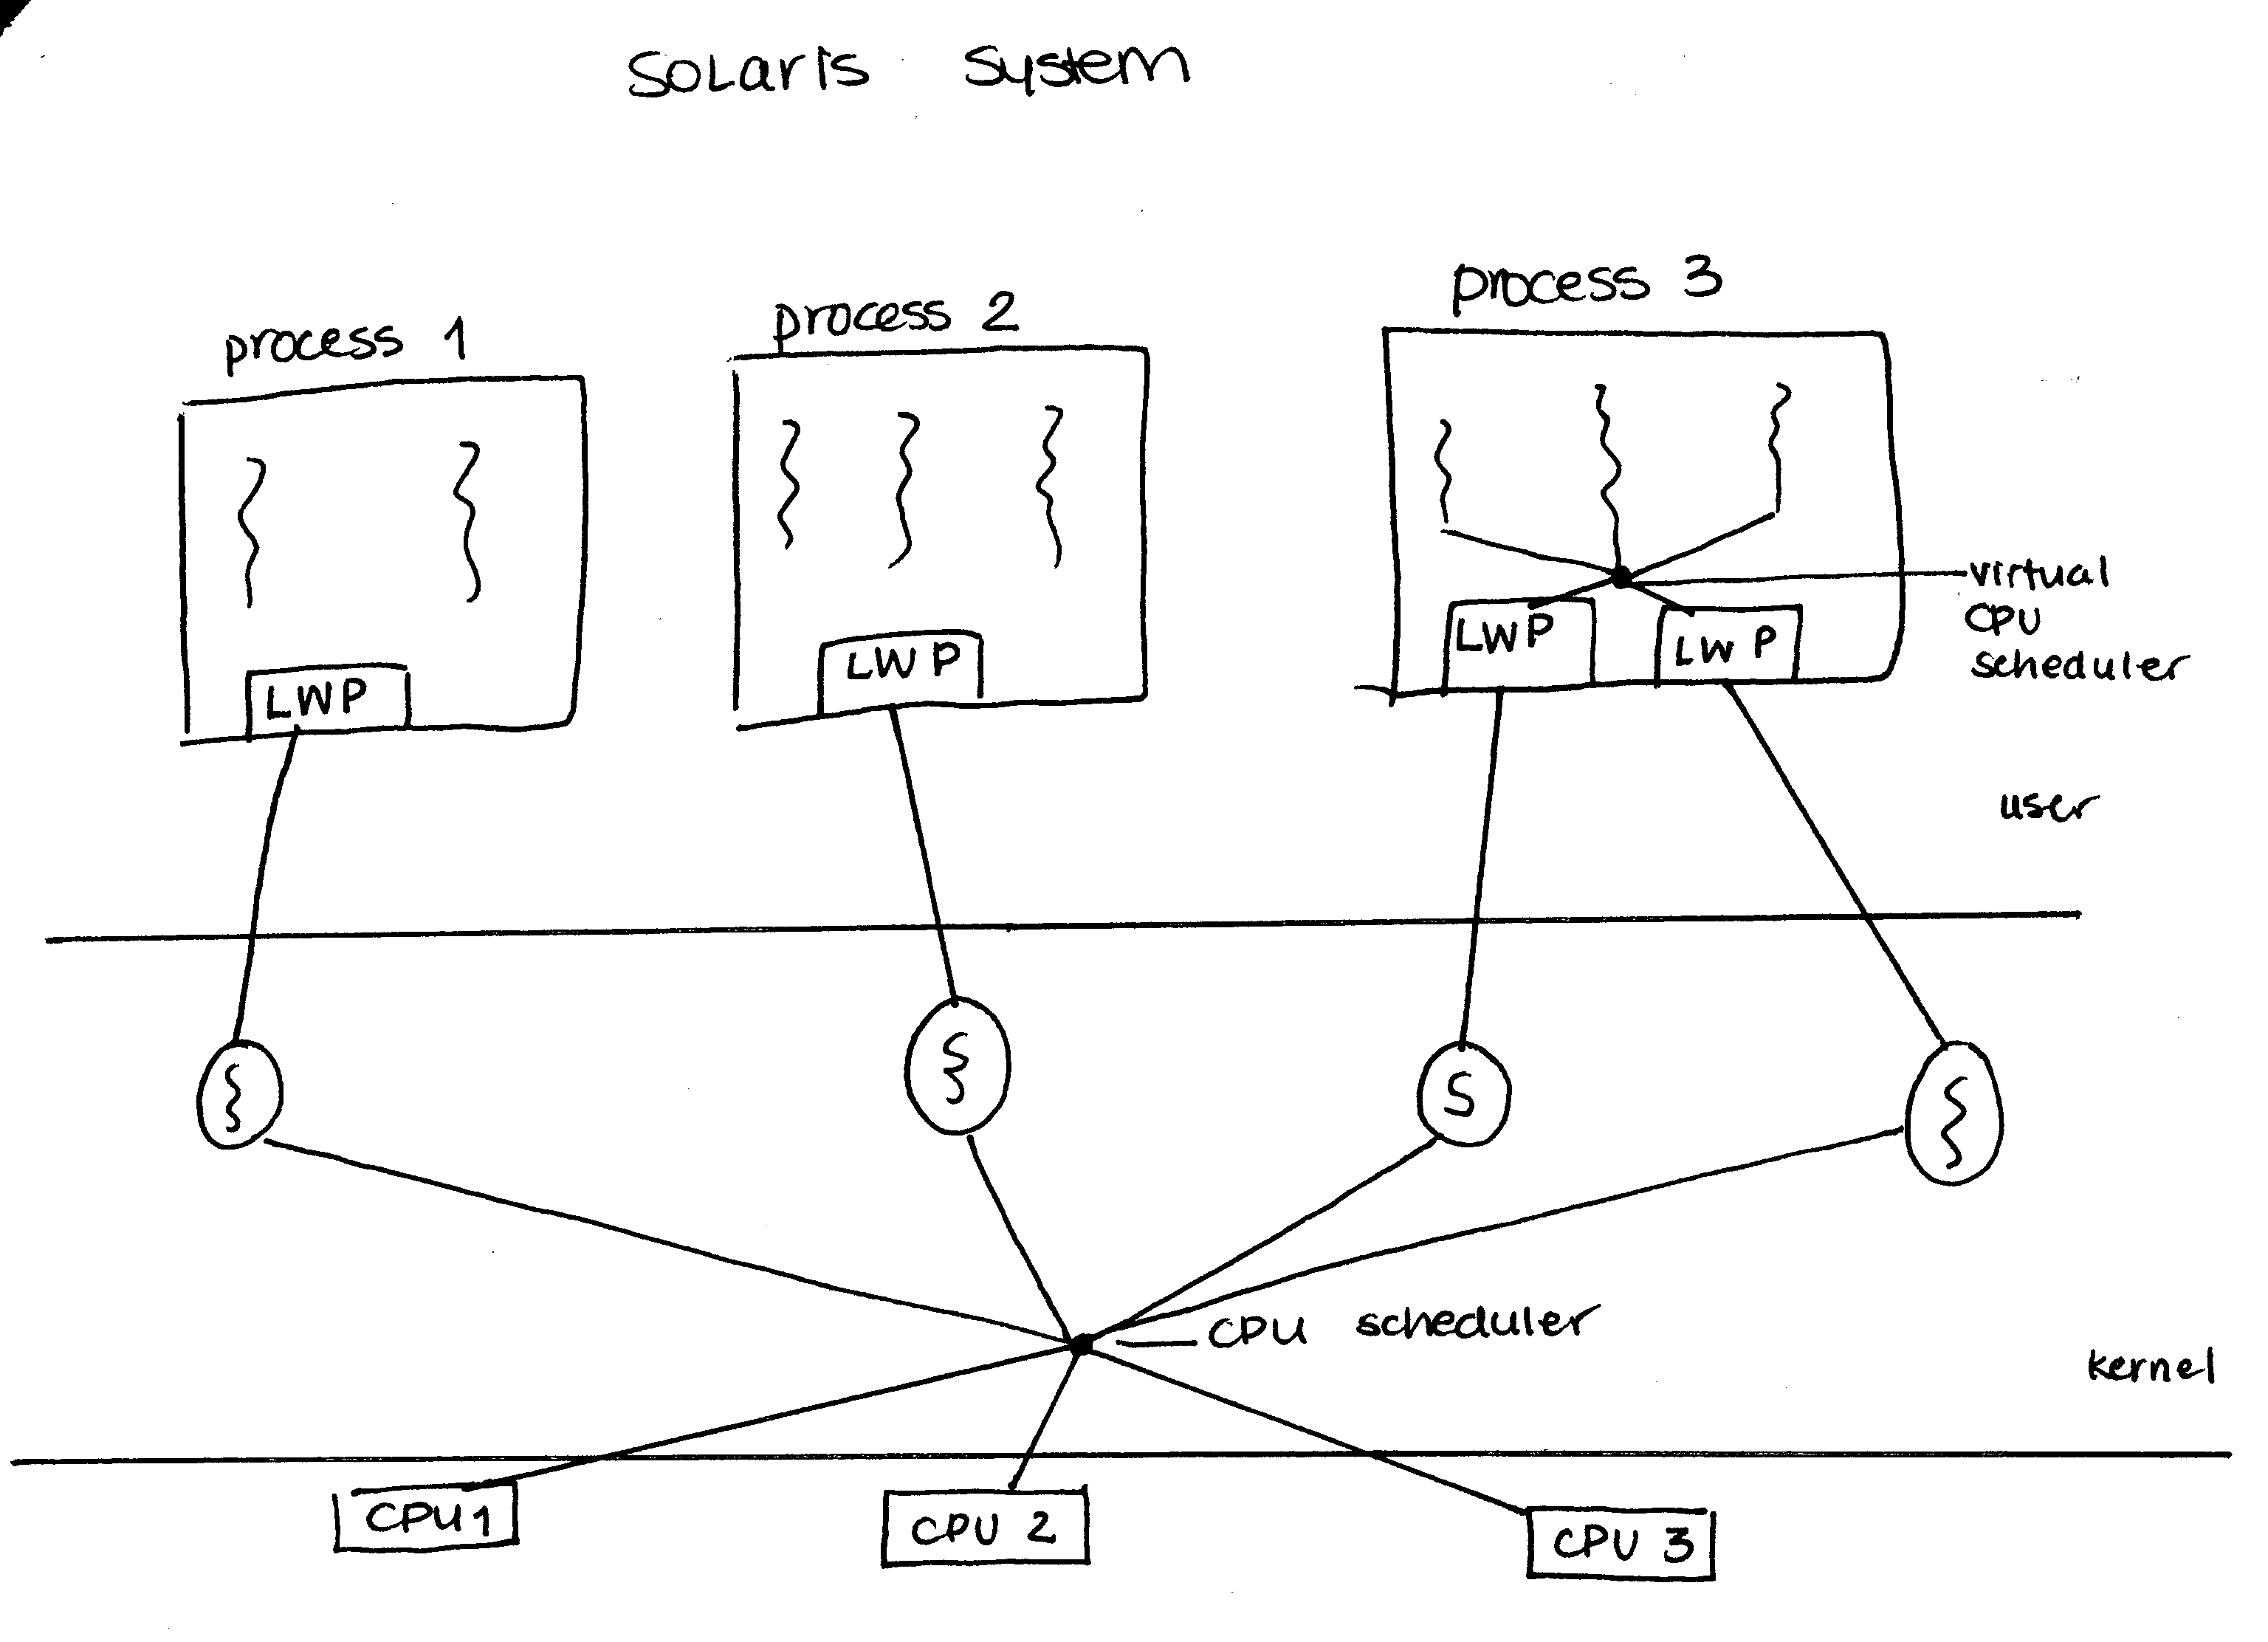 Solaris System
process 1
process 2
process 3
LWP
LWP
LWP
LWP
virtual
CPU
scheduler
user
CPU scheduler
kernel
CPU 1
CPU 2
CPU 3